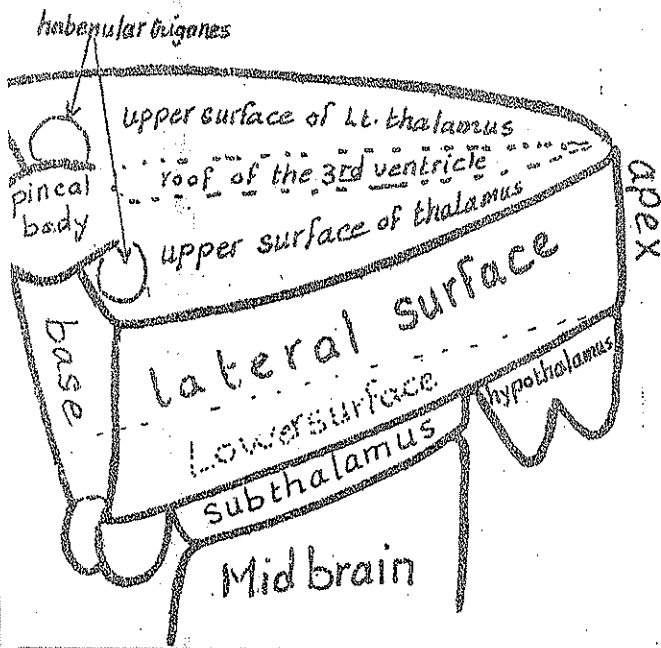 habenular trigones
upper surface of Lt. thalamus
roof of the 3rd ventricle
pineal
body
upper surface of thalamus
apex
base
lateral surface
Lower surface
hypothalamus
subthalamus
Midbrain